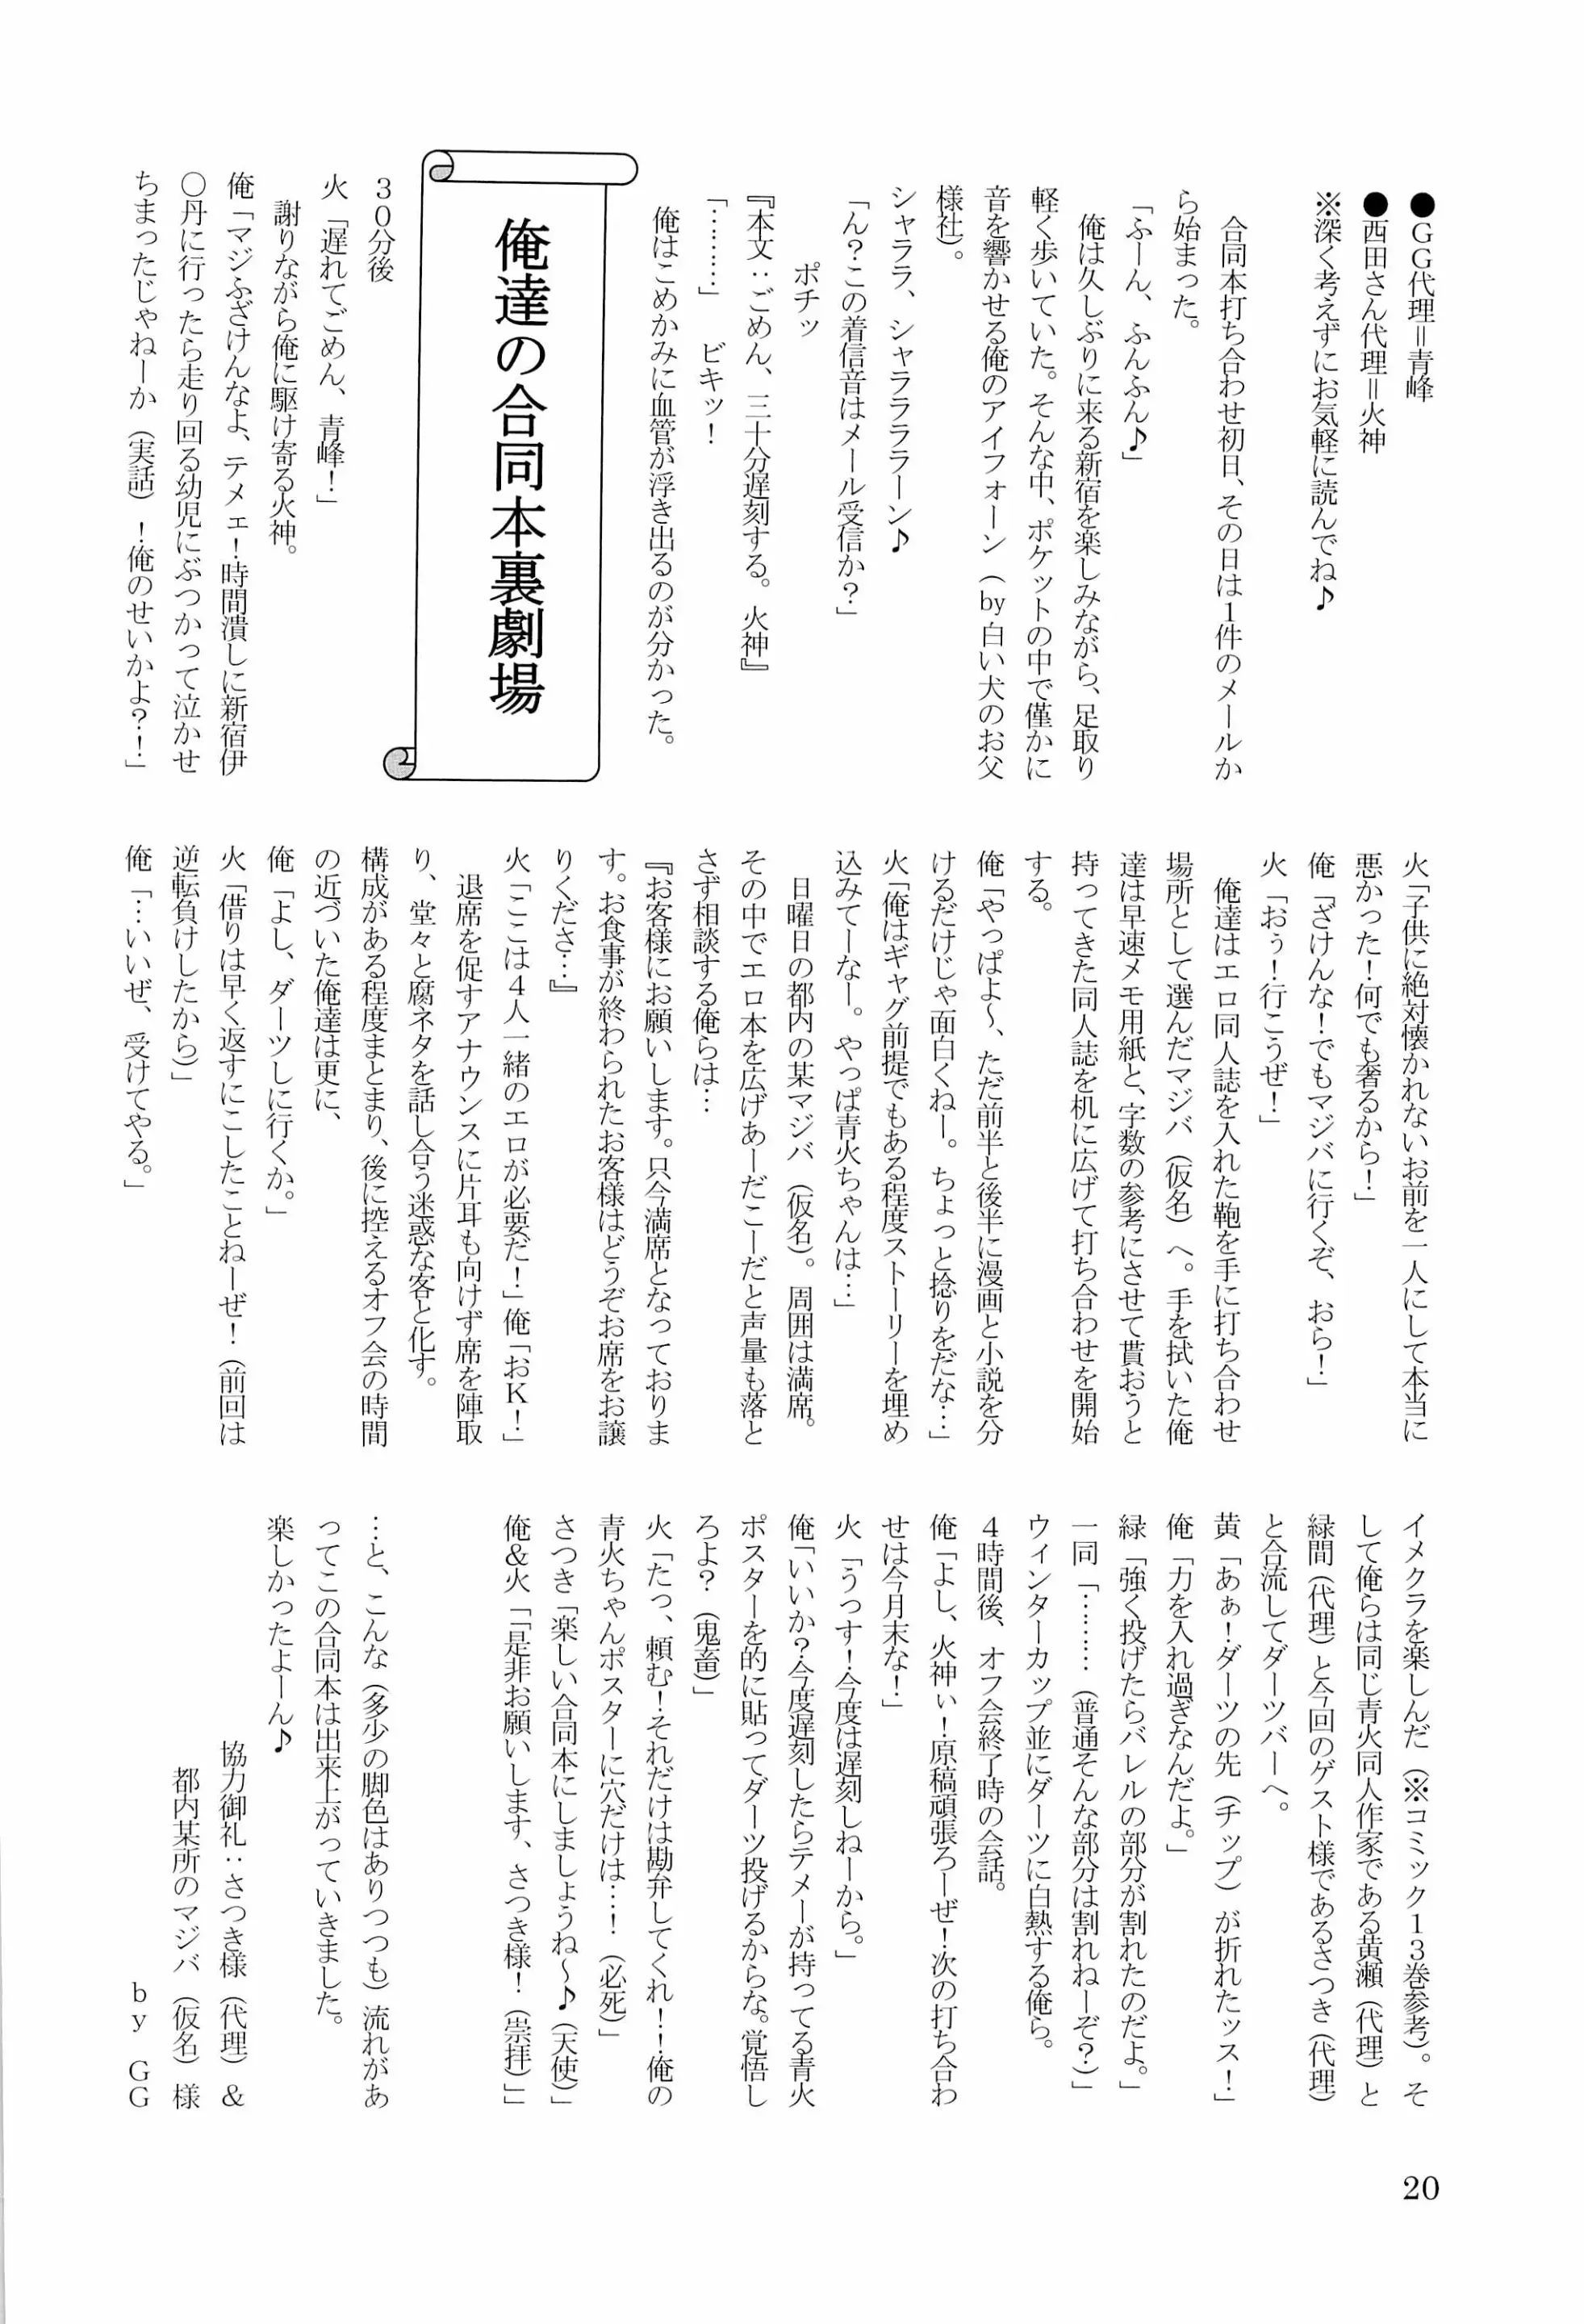 ●GG代理＝青峰
●西田さん代理＝火神
※深く考えずにお気軽に読んでね♪
合同本打ち合わせ初日、その日は1件のメールか
ら始まった。
「ふーん、ふんふん♪」
俺は久しぶりに来る新宿を楽しみながら、足取り
軽く歩いていた。そんな中、ポケットの中で僅かに
音を響かせる俺のアイフォーン（by白い犬のお父
様社）。
シャララ、シャララララーン♪
「ん？この着信音はメール受信か？」
ポチッ
『本文：ごめん、三十分遅刻する。火神』
「………」　ビキッ！
俺はこめかみに血管が浮き出るのが分かった。
俺達の合同本裏劇場
３０分後
火「遅れてごめん、青峰！」
謝りながら俺に駆け寄る火神。
俺「マジふざけんなよ、テメェ！時間潰しに新宿伊
〇丹に行ったら走り回る幼児にぶつかって泣かせ
ちまったじゃねーか（実話）！俺のせいかよ？！」
火「子供に絶対懐かれないお前を一人にして本当に
悪かった！何でも奢るから！」
俺「ざけんな！でもマジバに行くぞ、おら！」
火「おぅ！行こうぜ！」
俺達はエロ同人誌を入れた鞄を手に打ち合わせ
場所として選んだマジバ（仮名）へ。手を拭いた俺
達は早速メモ用紙と、字数の参考にさせて貰おうと
持ってきた同人誌を机に広げて打ち合わせを開始
する。
俺「やっぱよ～、ただ前半と後半に漫画と小説を分
けるだけじゃ面白くねー。ちょっと捻りをだな…」
火「俺はギャグ前提でもある程度ストーリーを埋め
込みてーなー。やっぱ青火ちゃんは…」
日曜日の都内の某マジバ（仮名）。周囲は満席。
その中でエロ本を広げあーだこーだと声量も落と
さず相談する俺らは…
『お客様にお願いします。只今満席となっておりま
す。お食事が終わられたお客様はどうぞお席をお譲
りくださ…』
火「ここは４人一緒のエロが必要だ！」俺「おK！」
退席を促すアナウンスに片耳も向けず席を陣取
り、堂々と腐ネタを話し合う迷惑な客と化す。
構成がある程度まとまり、後に控えるオフ会の時間
の近づいた俺達は更に、
俺「よし、ダーツしに行くか。」
火「借りは早く返すにこしたことねーぜ！（前回は
逆転負けしたから）」
俺「…いいぜ、受けてやる。」
イメクラを楽しんだ（※コミック１３巻参考）。そ
して俺らは同じ青火同人作家である黄瀬（代理）と
緑間（代理）と今回のゲスト様であるさつき（代理）
と合流してダーツバーへ。
黄「あぁ！ダーツの先（チップ）が折れたッス！」
俺「力を入れ過ぎなんだよ。」
緑「強く投げたらバレルの部分が割れたのだよ。」
一同「………（普通そんな部分は割れねーぞ？）」
ウィンターカップ並にダーツに白熱する俺ら。
４時間後、オフ会終了時の会話。
俺「よし、火神ぃ！原稿頑張ろーぜ！次の打ち合わ
せは今月末な！」
火「うっす！今度は遅刻しねーから。」
俺「いいか？今度遅刻したらテメーが持ってる青火
ポスターを的に貼ってダーツ投げるからな。覚悟し
ろよ？（鬼畜）」
火「たっ、頼む！それだけは勘弁してくれ！！俺の
青火ちゃんポスターに穴だけは…！（必死）」
さつき「楽しい合同本にしましょうね～♪（天使）」
俺＆火「「是非お願いします、さつき様！（崇拝）」」
…と、こんな（多少の脚色はありつつも）流れがあ
ってこの合同本は出来上がっていきました。
楽しかったよーん♪
協力御礼：さつき様（代理）＆
都内某所のマジバ（仮名）様
by　GG
20